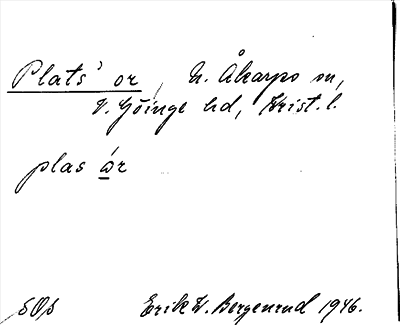 Plats' or, N. Åkarps sn,
V. Göinge hd, Krist. l.
plas ór
SOs
Erik W. Bergenrud 1946.